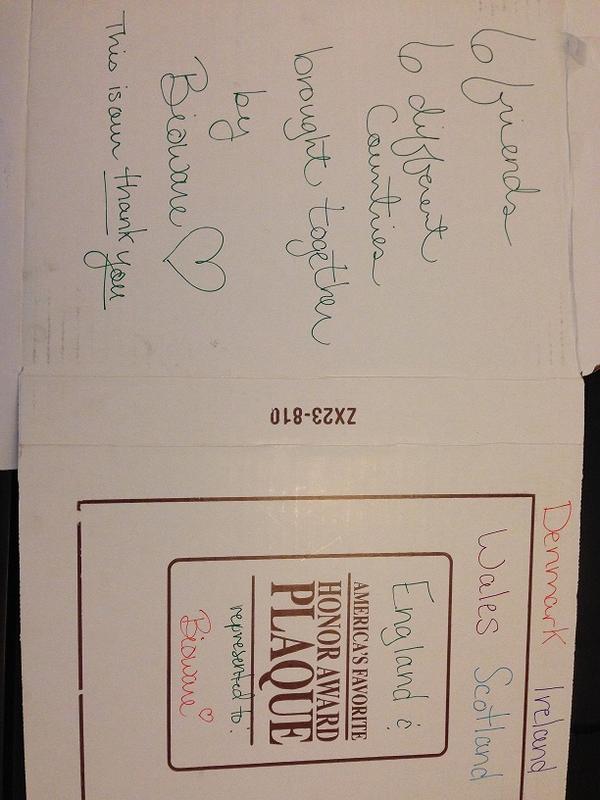 6 friends
6 different
Countries
brought together
by
Bioware ♡
This is our thank you
ZX23-810
Denmark Ireland
Wales Scotland
England &
AMERICA'S FAVORITE
HONOR AWARD
PLAQUE
represented to:
Bioware ♡